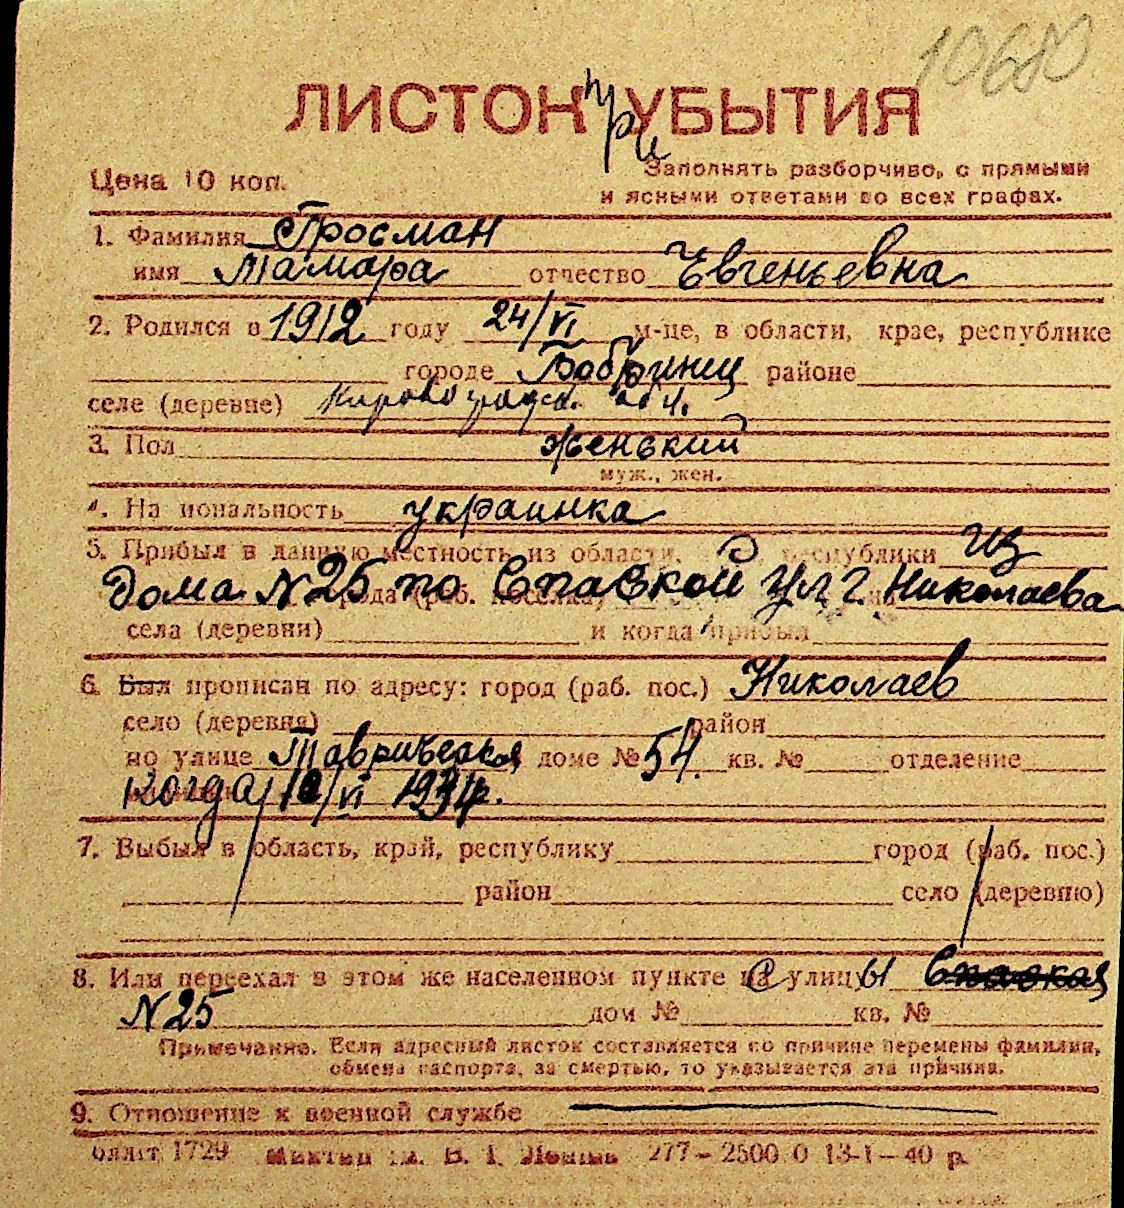 10680
ЛИСТОК при УБЫТИЯ
Цена 10 коп.
Заполнять разборчиво, с прямыми
и ясными ответами во всех графах.
1. Фамилия Гросман
имя Тамара отчество Евгеньевна
2. Родился в 1912 году 24/VI м-це, в области, крае, республике
городе Бобринец районе
селе (деревне) Кировоградск. обл.
3. Пол женский
муж., жен.
4. Национальность украинка
5. Прибыл в данную местность из области, республики из
дома N 25 по Спасской ул г. Николаева
села (деревни) и когда прибыл
6. Был прописан по адресу: город (раб. пос.) Николаев
село (деревня) район
по улице Таврическая доме № 54. кв. № отделение
когда 10/VI
7. Выбыл в область, край, республику город (раб. пос.)
район село (деревню)
8. Или переехал в этом же населенном пункте с улицы Спаская
N 25 дом № кв. №
Примечание. Если адресный листок составляется по причине перемены фамилии,
обмена паспорта, за смертью, то указывается эта причина.
9. Отношение к военной службе
1729 277–2500 0 13-1–40 р.